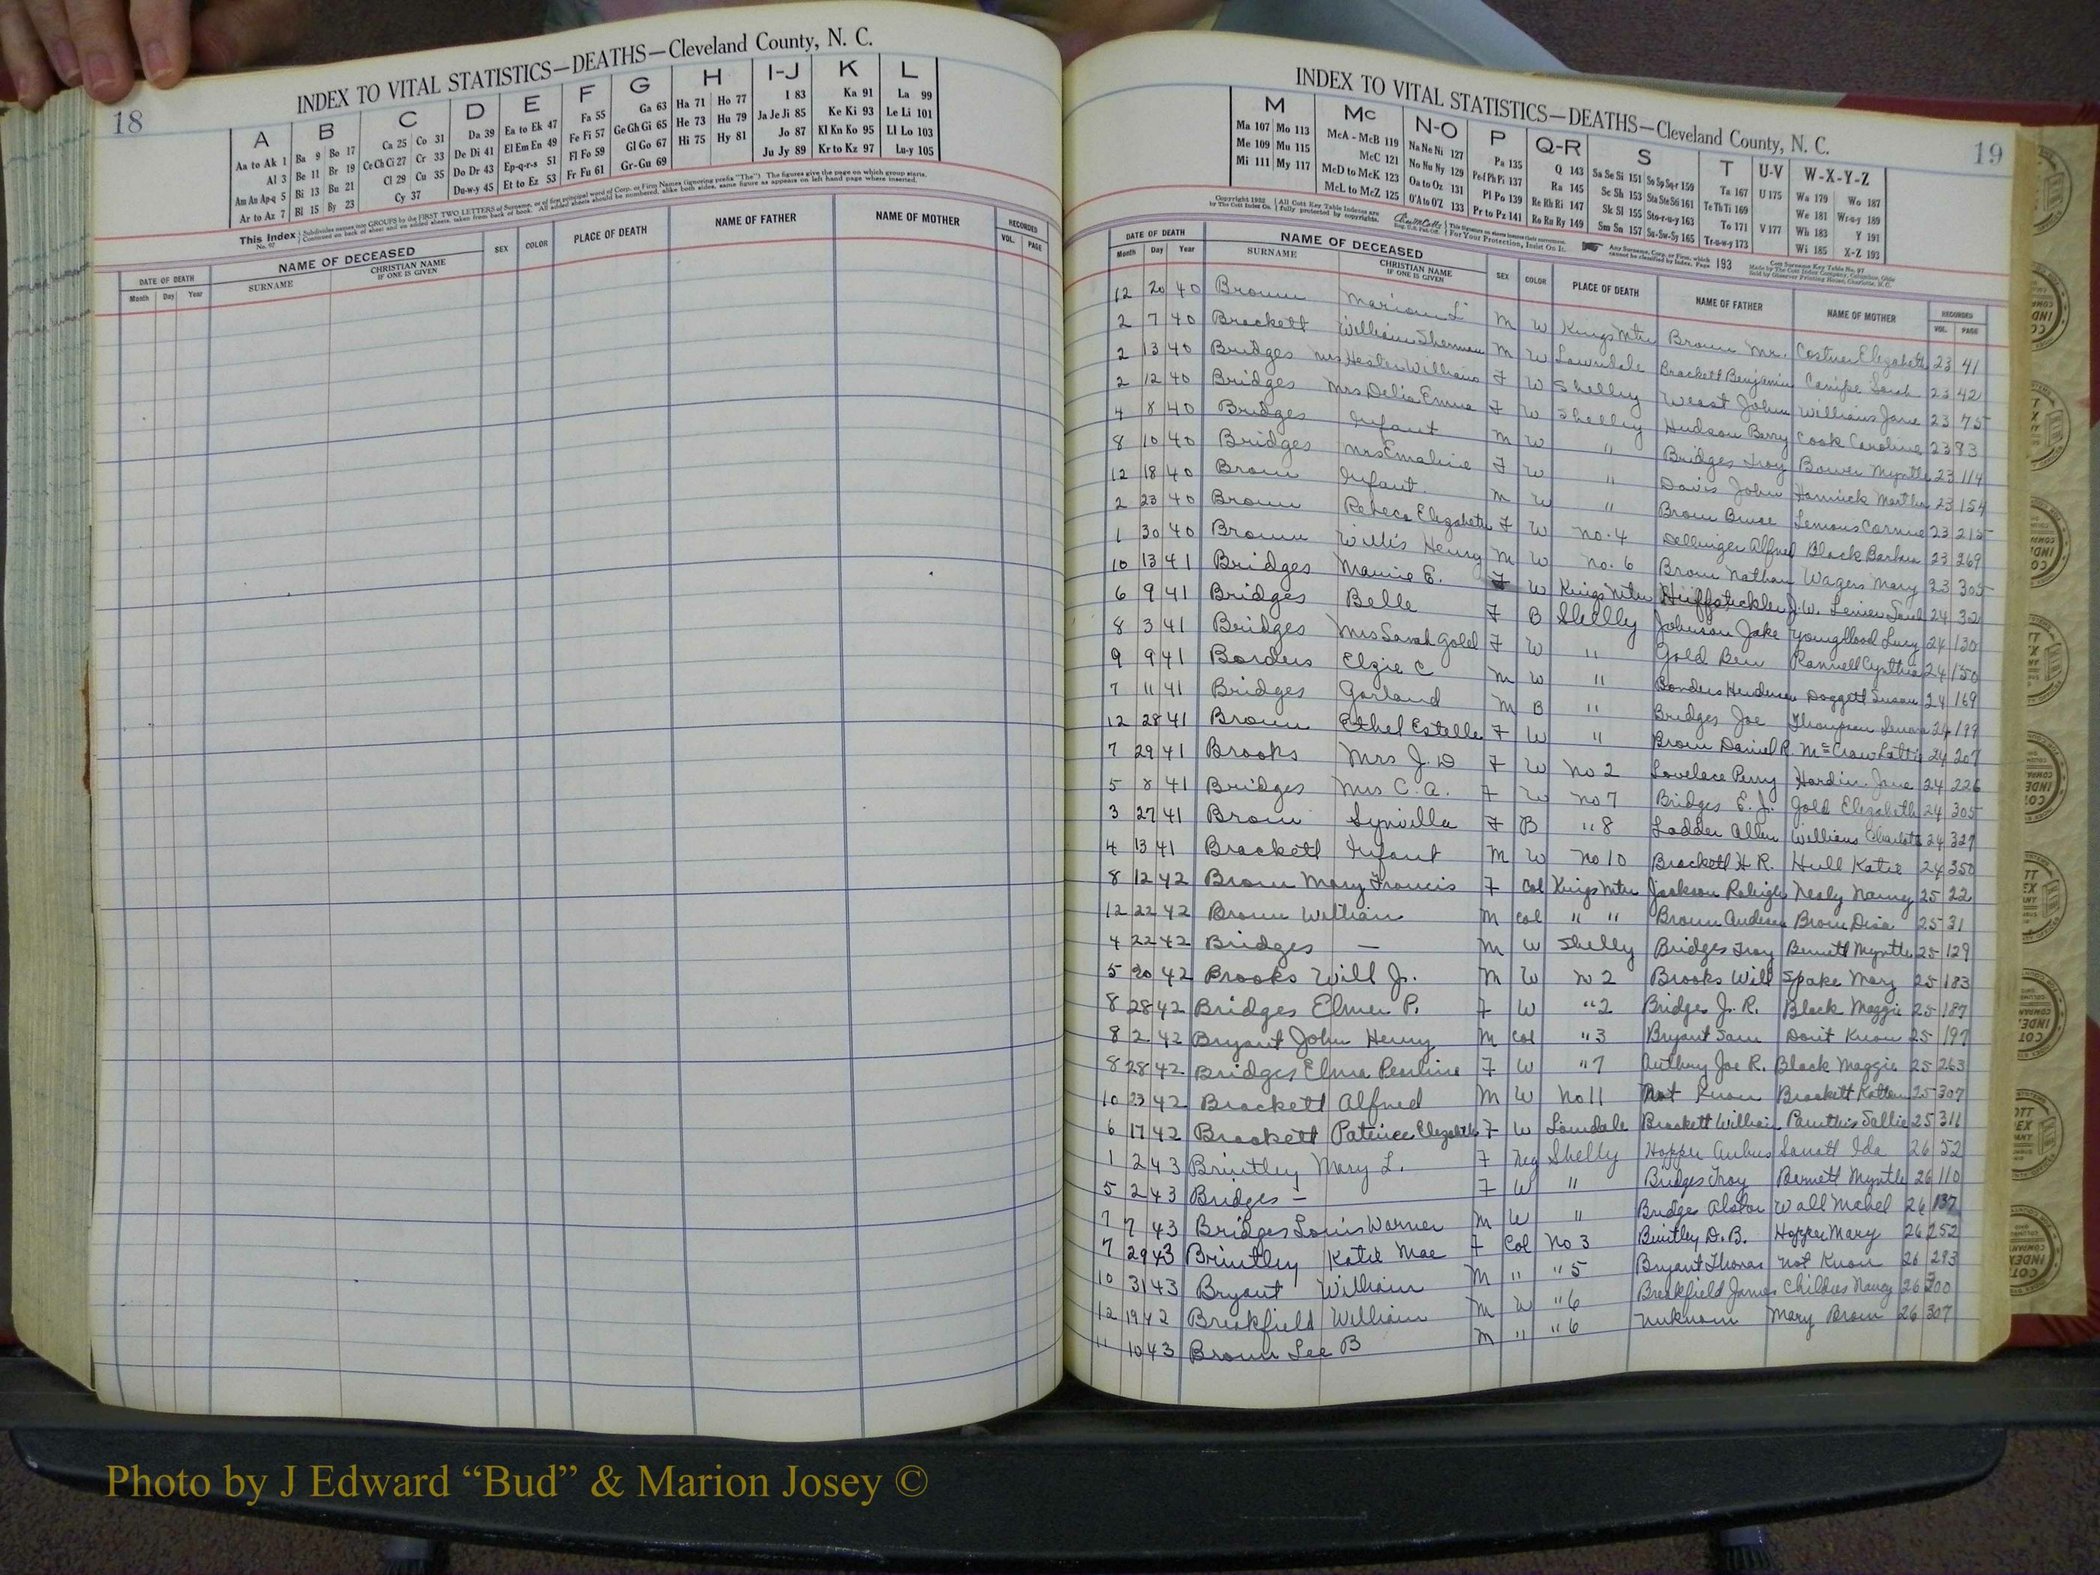 18
INDEX TO VITAL STATISTICS—DEATHS—Cleveland County, N. C.
A B C D E F G H I-J K L
Aa to Ak 1 Ba 9 Bo 17 Ca 25 Co 31 Da 39 Ea to Ek 47 Fa 55 Ga 63 Ha 71 Ho 77 I 83 Ka 91 La 99
Al 3 Be 11 Br 19 Ce Ch Ci 27 Cr 33 De Di 41 El Em En 49 Fe Fi 57 Ge Gh Gi 65 He 73 Hu 79 Ja Je Ji 85 Ke Ki 93 Le Li 101
Am An Ap-q 5 Bi 13 Bu 21 Cl 29 Cu 35 Do Dr 43 Ep-q-r-s 51 Fl Fo 59 Gl Go 67 Hi 75 Hy 81 Jo 87 Kl Kn Ko 95 Ll Lo 103
Ar to Az 7 Bl 15 By 23 Cy 37 Du-w-y 45 Et to Ez 53 Fr Fu 61 Gr-Gu 69 Ju Jy 89 Kr to Kz 97 Lu-y 105
This Index
DATE OF DEATH NAME OF DECEASED SEX COLOR PLACE OF DEATH NAME OF FATHER NAME OF MOTHER RECORDED
Month Day Year SURNAME CHRISTIAN NAME IF ONE IS GIVEN VOL. PAGE
INDEX TO VITAL STATISTICS—DEATHS—Cleveland County, N. C.
19
M Mc N-O P Q-R S T U-V W-X-Y-Z
Ma 107 Mo 113 McA - McB 119 Na Ne Ni 127 Pa 135 Q 143 Sa Se Si 151 So Sp Sq-r 159 Ta 167 U 175 Wa 179 Wo 187
Me 109 Mu 115 McC 121 No Nu Ny 129 Pe-f Ph Pi 137 Ra 145 Sc Sh 153 Sta Ste Sti 161 Te Th Ti 169 We 181 Wr-u-y 189
Mi 111 My 117 McD to McK 123 Oa to Oz 131 Pl Po 139 Re Rh Ri 147 Sk Sl 155 Sto-r-u-y 163 To 171 V 177 Wh 183 Y 191
McL to McZ 125 O'A to O'Z 133 Pr to Pz 141 Ro Ru Ry 149 Sm Sn 157 Su-Sw-Sy 165 Tr-u-w-y 173 Wi 185 X-Z 193
DATE OF DEATH NAME OF DECEASED SEX COLOR PLACE OF DEATH NAME OF FATHER NAME OF MOTHER RECORDED
Month Day Year SURNAME CHRISTIAN NAME IF ONE IS GIVEN VOL. PAGE
12 20 40 Brown Marion L M W Kings Mtn Brown Mr. Costner Elizabeth 23 41
2 7 40 Brackett William Sherman M W Lawndale Brackett Benjamin Canipe Sarah 23 42
2 13 40 Bridges Mrs Hester Williams F W Shelby Weast John Williams Jane 23 75
2 12 40 Bridges Mrs Delia Emma F W Shelby Hudson Berry Cook Caroline 23 83
4 8 40 Bridges Infant M W " Bridges Troy Bowen Myrtle 23 114
8 10 40 Bridges Mrs Emaline F W " Davis John Hamrick Martha 23 154
12 18 40 Brown Infant M W " Brown Bruce Lemons Connie 23 215
2 23 40 Brown Rebeca Elizabeth F W No. 4 Dellinger Alfred Black Barbara 23 269
1 30 40 Brown Willis Henry M W No. 6 Brown Nathan Wagers Mary 23 305
10 13 41 Bridges Mamie E. F W Kings Mtn Huffstickler J.W. 24 32
6 9 41 Bridges Belle F B Shelby Johnson Jake Youngblood Lucy 24 130
8 3 41 Bridges Mrs Sarah Gold F W " Gold Ben Pannell Cynthia 24 150
9 9 41 Borders Elzie C M W " Borders Henderson Doggett Susan 24 169
7 11 41 Bridges Garland M B " Bridges Joe Thompson 24 199
12 28 41 Brown Ethel Estelle F W " Brown Daniel R. McCraw Lattie 24 207
7 29 41 Brooks Mrs J. D F W No 2 Lovelace Perry Hardin Jane 24 226
5 8 41 Bridges Mrs C. A. F W No 7 Bridges E. J. Gold Elizabeth 24 305
3 27 41 Brown Synvilla F B " 8 Ladder Allen Williams Charlotte 24 327
4 13 41 Brackett Infant M W No 10 Brackett H R. Hull Katie 24 350
8 12 42 Brown Mary Francis F Col Kings Mtn Jackson Raleigh Nealy Nancy 25 22
12 22 42 Brown William M Col " " Brown Anderson Brown Disa 25 31
4 22 42 Bridges — M W Shelby Bridges Troy Bennett Myrtle 25 129
5 20 42 Brooks Will Jr. M W N 2 Brooks Will Spake Mary 25 183
8 28 42 Bridges Elmer P. F W " 2 Bridges J. R. Black Maggie 25 187
8 2 42 Bryant John Henry M Col " 3 Bryant Sam Don't Know 25 197
8 28 42 Bridges Elma Pearline F W " 7 Anthony Joe R. Black Maggie 25 263
10 23 42 Brackett Alfred M W No 11 Not Know Brackett 25 307
6 17 42 Brackett Patience Elizabeth F W Lawndale Brackett William Sallie 25 311
1 2 43 Brintley Mary L. F Neg Shelby Hopper Ida 26 52
5 2 43 Bridges — F W " Bridges Troy Bennett Myrtle 26 110
7 7 43 Bridges Louis Warner M W " Bridges Wall Mabel 26 137
7 29 43 Brintley Katie Mae F Col No 3 Brintley D. B. Hopper Mary 26 252
10 31 43 Bryant William M " " 5 Bryant Thomas Not Know 26 293
12 19 42 Breakfield William M W " 6 Breakfield James Childres Nancy 26 300
11 10 43 Brown Lee B M " " 6 Unknown Mary Brown 26 307
Photo by J Edward “Bud” & Marion Josey ©